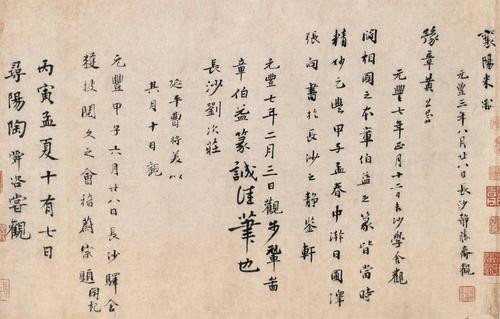 襄陽米黻
元豐三年八月廿八日長沙靜勝齋觀
豫章黃公器
元豐七年正月十二日長沙學舍觀
閻相國之本章伯益之篆皆當時
精妙元豐甲子孟春中澣日圃澤
張向書於長沙之靜鑒軒
元豐七年二月三日觀步輦圖
章伯益篆誠佳筆也
長沙劉次莊
延平曹將美以
其月十日觀
元豐甲子六月廿八日長沙驛舍
獲披閱久之會稽蔚宗題
丙寅孟夏十有七日
尋陽陶舜咨嘗觀